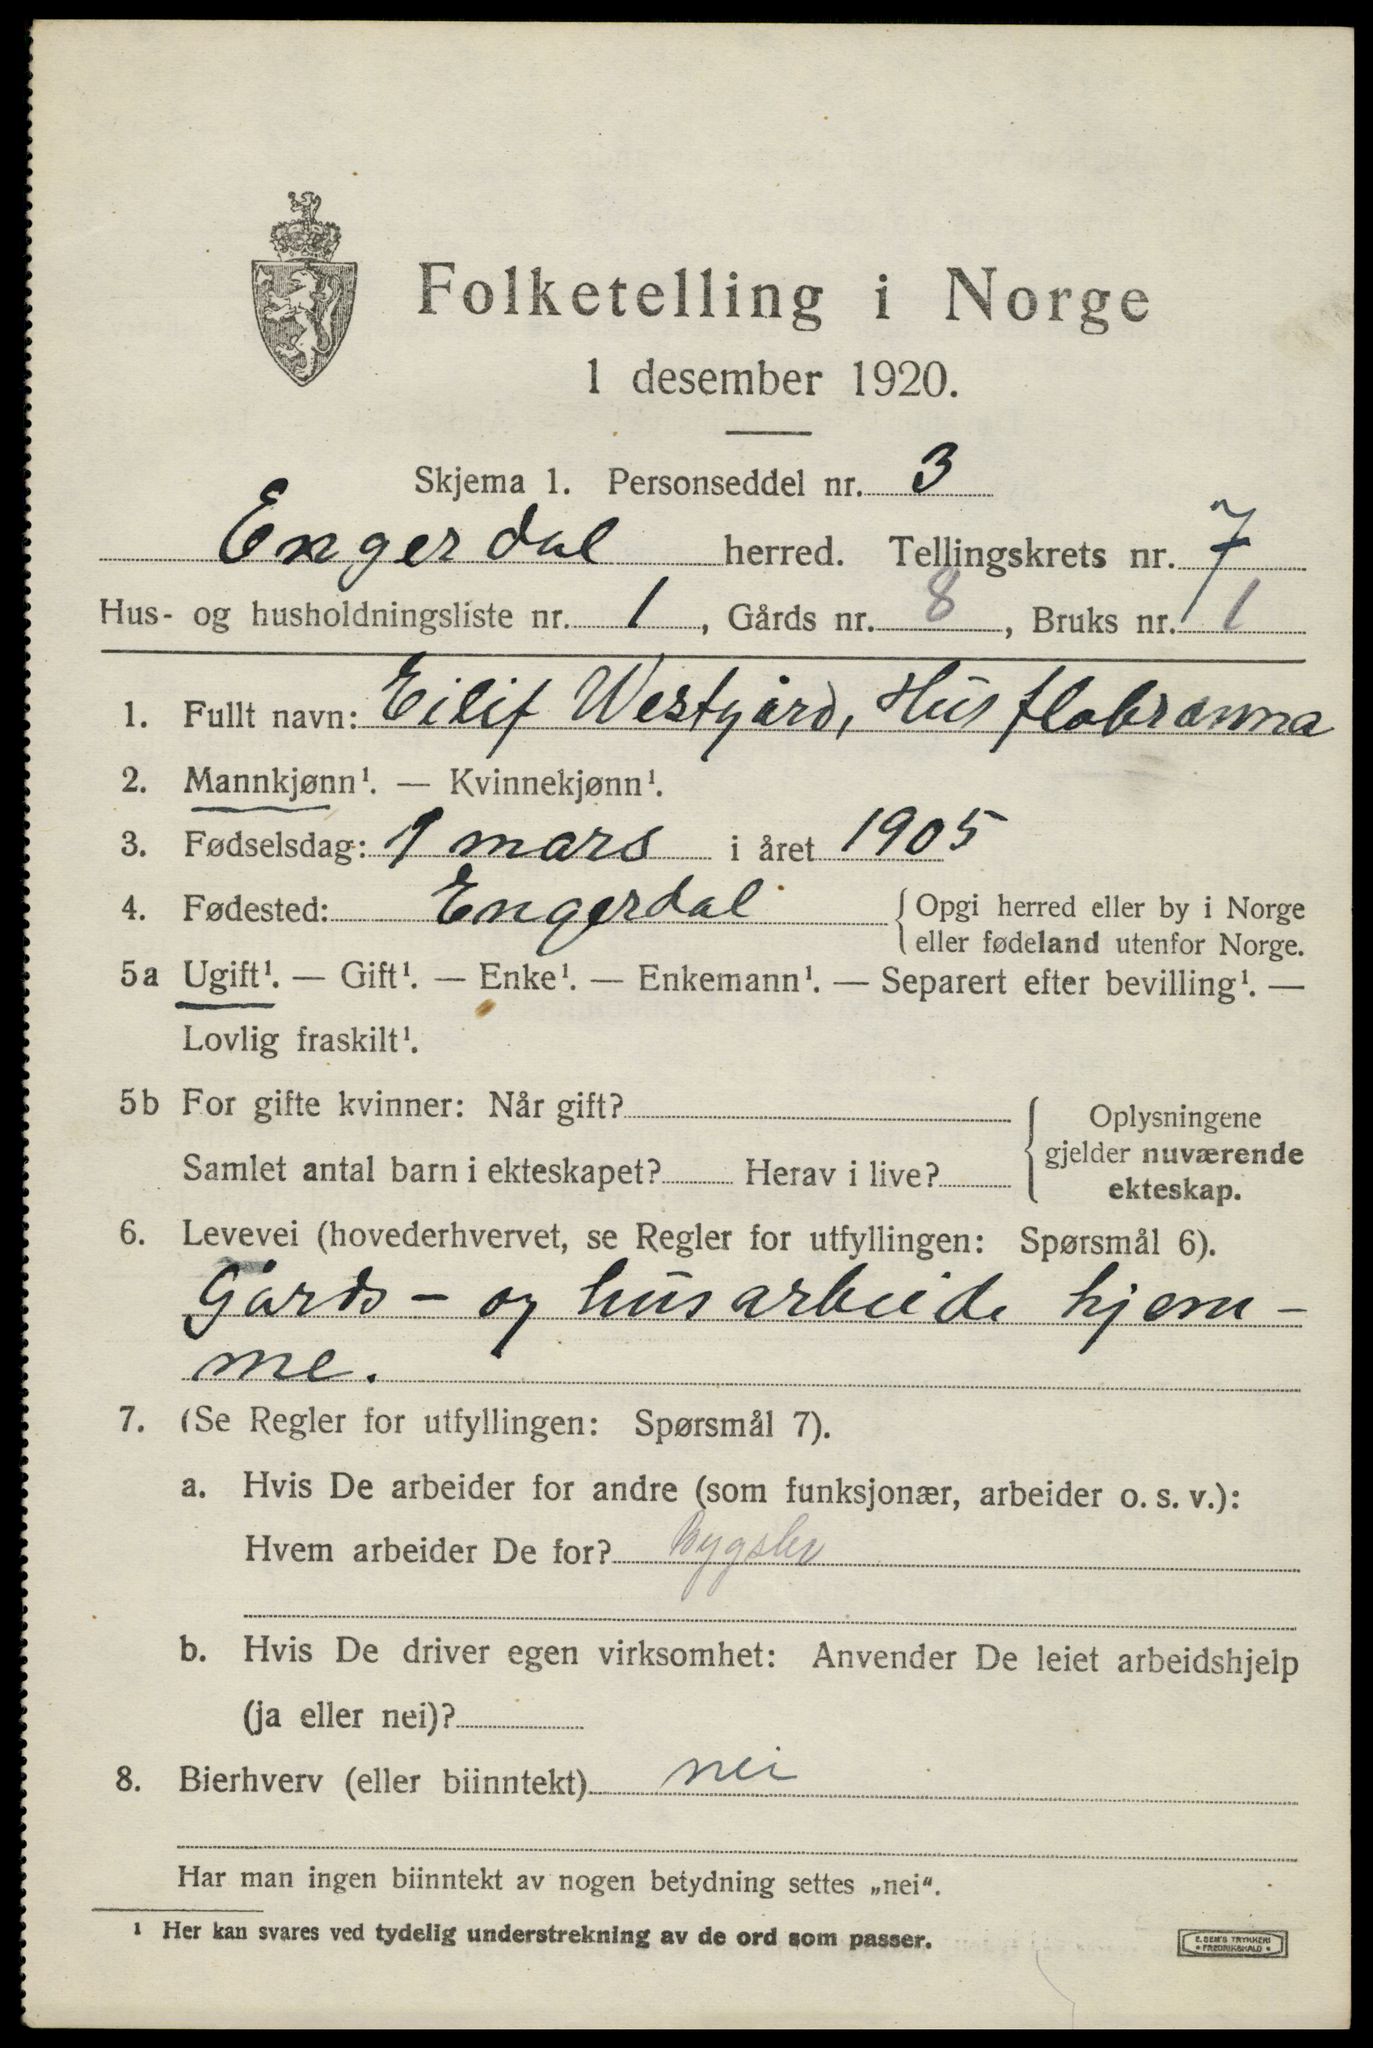 Folketelling i Norge
1 desember 1920.
Skjema 1. Personseddel nr. 3
Engerdal herred. Tellingskrets nr. 7
Hus- og husholdningsliste nr. 1, Gårds nr. 8, Bruks nr. 1
1. Fullt navn: Eilif Westgård, Husflobrænna
2. Mannkjønn¹. — Kvinnekjønn¹.
3. Fødselsdag: 1 mars i året 1905
4. Fødested: Engerdal { Opgi herred eller by i Norge
eller fødeland utenfor Norge.
5a Ugift¹. — Gift¹. — Enke¹. — Enkemann¹. — Separert efter bevilling¹. —
Lovlig fraskilt¹.
5b For gifte kvinner: Når gift? { Oplysningene
gjelder nuværende
Samlet antal barn i ekteskapet? Herav i live? ekteskap.
6. Levevei (hovederhvervet, se Regler for utfyllingen: Spørsmål 6).
Gårds- og husarbeide hjem-
me.
7. (Se Regler for utfyllingen: Spørsmål 7).
a. Hvis De arbeider for andre (som funksjonær, arbeider o. s. v.):
Hvem arbeider De for?
b. Hvis De driver egen virksomhet: Anvender De leiet arbeidshjelp
(ja eller nei)?
8. Bierhverv (eller biinntekt) nei
Har man ingen biinntekt av nogen betydning settes „nei“.
¹ Her kan svares ved tydelig understrekning av de ord som passer.
E. SEM'S TRYKKERI
* FREDRIKSHALD *